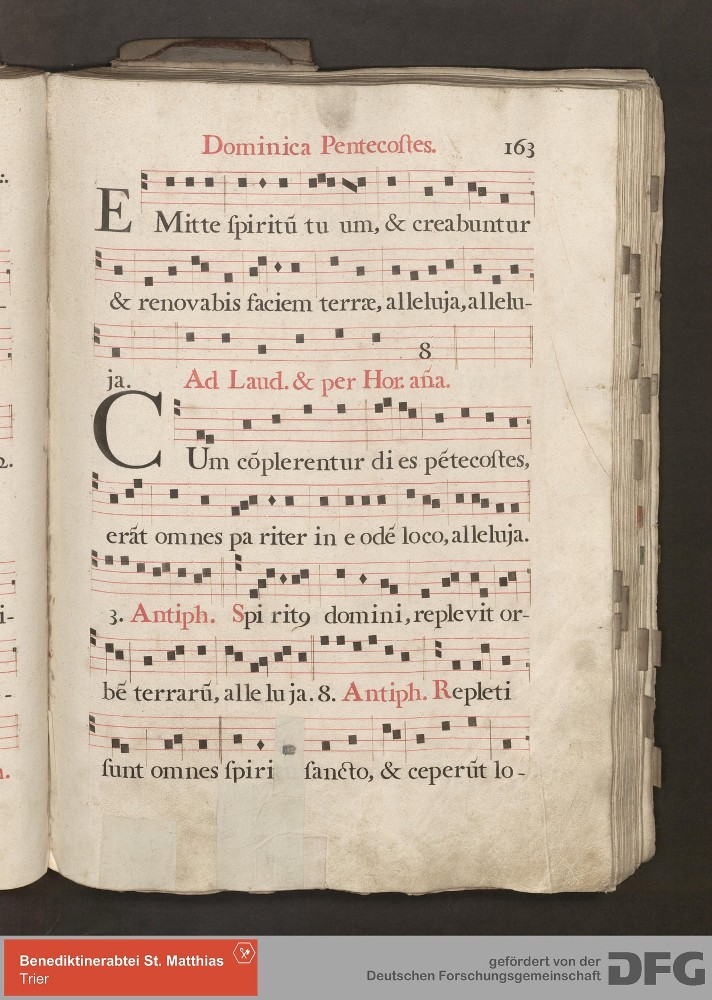 Dominica Pentecoſtes. 163
E Mitte ſpiritū tu um, & creabuntur
& renovabis faciem terræ, alleluja, allelu-
8
ja. Ad Laud. & per Hor. aña.
C Um cōplerentur di es pētecoſtes,
erāt omnes pa riter in e odē loco, alleluja.
3. Antiph. Spi rit9 domini, replevit or-
bē terrarū, alle lu ja. 8. Antiph. Repleti
ſunt omnes ſpiri ſancto, & ceperūt lo-
2.
i-
-
Benediktinerabtei St. Matthias
Trier
gefördert von der
Deutschen Forschungsgemeinschaft
DFG